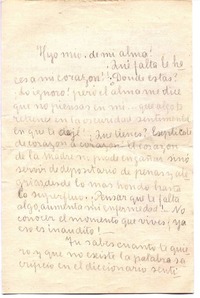 Hijo mio, de mi alma!
¡Qué falta le haces a mi corazón! ¿Donde estás?
lo ignoro! pero el alma me dice
que no piensas en mi
en la oscuridad
en que te dejé! ¿Qué tienes?
de corazón a corazon, el corazón
de la Madre no puede engañar, sinó
servir de depositario de penas y
desde lo mas hondo hasta
lo superfluo. ¡Pensar que te falta
algo, aumenta mi enfermedad! No
conocer el momento que vives; ya
eso es inaudito!
Tu sabes cuanto te quiero
y que no existe la palabra sacrificio
en el diccionario